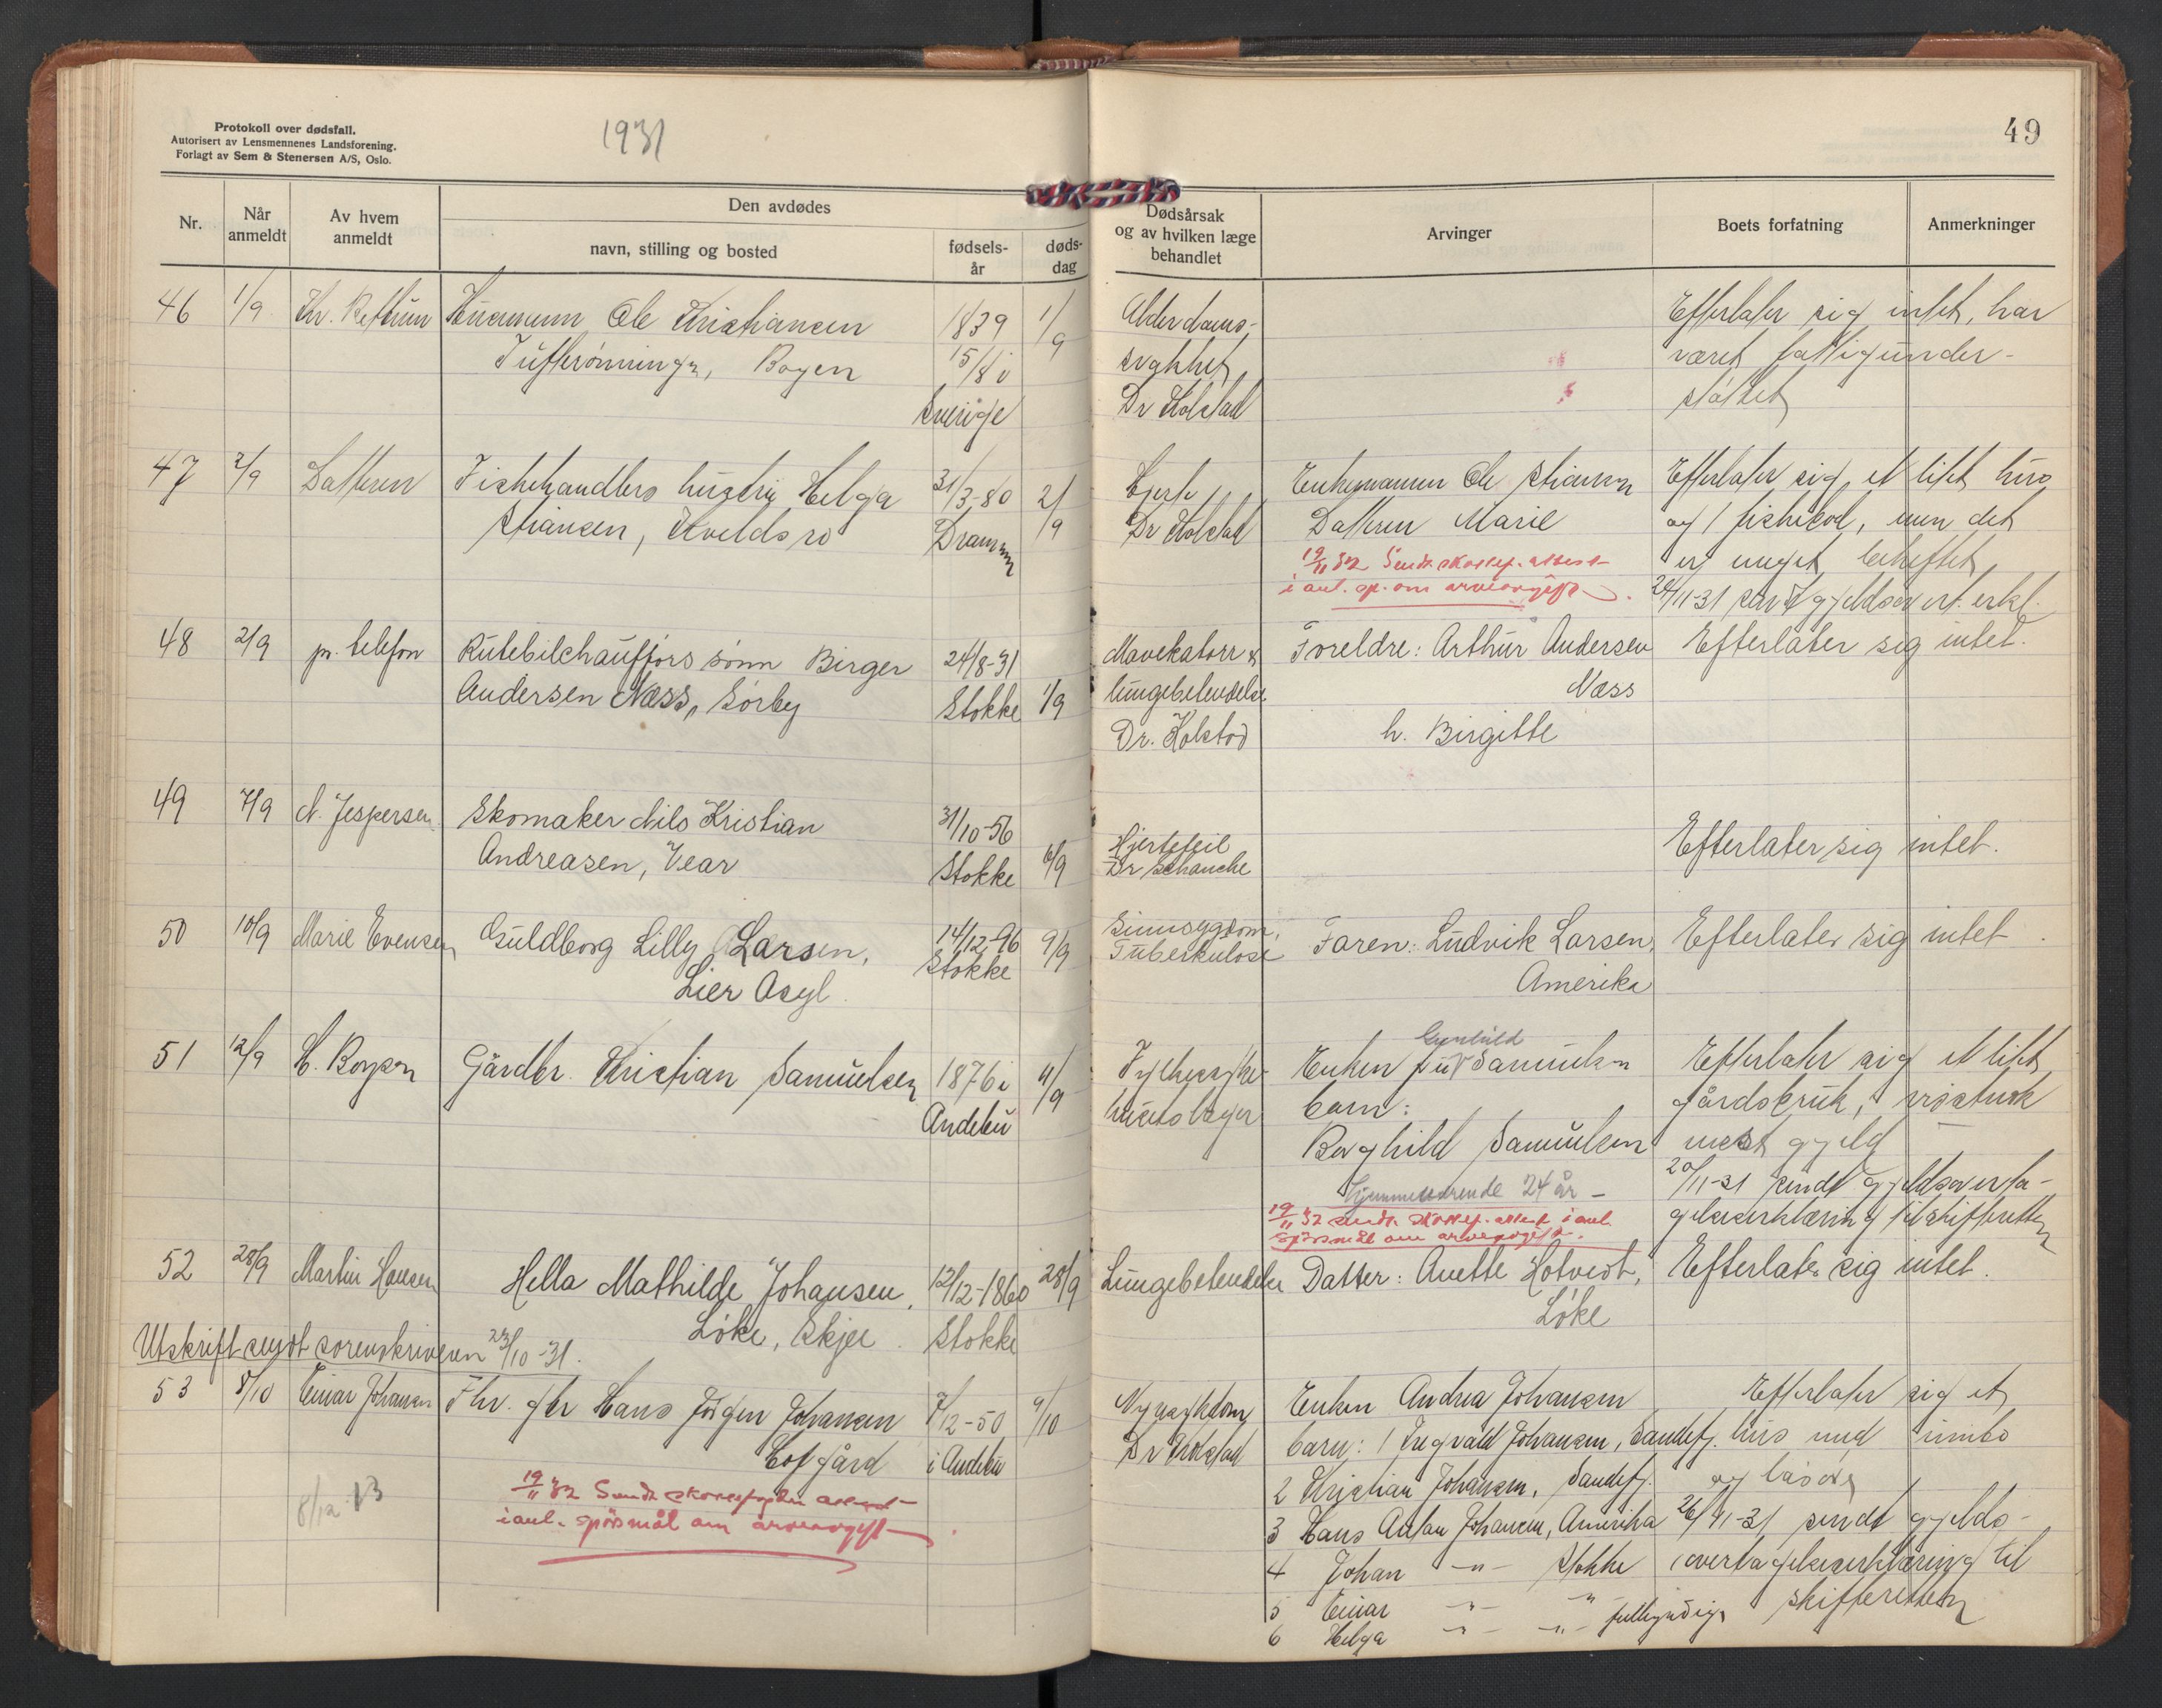 Protokoll over dødsfall.
Autorisert av Lensmennenes Landsforening.
Forlagt av Sem & Stenersen A/S, Oslo.
1931
49
Nr.
Når anmeldt
Av hvem anmeldt
Den avdødes
navn, stilling og bosted
fødsels-år
døds-dag
Dødsårsak og av hvilken læge behandlet
Arvinger
Boets forfatning
Anmerkninger
46 1/9 Ole Kristiansen 1839 1/9 Alderdoms- Efterlater sig intet, har
Bogen 15/8 i svakhet været fattigunder-
Sverige Dr Holstad støttet
47 2/9 Datteren Fiskehandlers hustru Helga 31/3-80 2/9 Hjerte Enkemannen Ole Stiansen Efterlater sig et litet hus
Stiansen, Kveldsro Drammen Dr Holstad Datteren Marie og 1 fiskebod, men det
19/11 32 Sendt skattef. attest er meget beheftet
i anl. sp. om arveavgift. 20/11-31 sendt gjeldsovert. erkl.
48 2/9 pr. telefon Rutebilchaufførs sønn Birger 24/8-31 Mavekatarr & Foreldre: Arthur Andersen Efterlater sig intet.
Andersen Næss, Sørby Stokke 1/9 lungebetendelse Næss
Dr. Holstad h. Birgitte
49 7/9 N. Jespersen Skomaker Nils Kristian 31/10-56
Andreasen, Vear Stokke 6/9 Hjertefeil Efterlater sig intet.
Dr Schanche
50 10/9 Marie Evensen Guldborg Lilly Larsen, 14/12-96 9/9 Sinnsygdom, Faren: Ludvik Larsen, Efterlater sig intet.
Lier Asyl. Stokke Tuberkulose Amerika
Gunhild
51 12/9 Gårdbr. Kristian Samuelsen 1876 i 11/9 Enken Samuelsen Efterlater sig et litet
Andebu barn: gårdsbruk,
Borghild Samuelsen mest gjeld
Hjemmeværende 24 år - 20/11-31 sendt gjeldsoverta-
19/11 32 sendt skattef. attest i anl. gelseserklæring til skifteretten
spørsmål om arveavgift.
52 28/9 Martin Hansen Hella Mathilde Johansen, 12/12-1860 28/9 Lungebetendelse Datter: Anette Hotvedt, Efterlater sig intet.
Løke, Skjee. Stokke Løke
Utskrift sendt sorenskriveren 23/10-31.
53 8/10 Einar Johansen Fhv. gbr Hans Jörgen Johansen 7/12-50 Nyresykdom Enken Andrea Johansen Efterlater sig et
gård i Andebu Dr Holstad barn: 1 Ingvald Johansen, Sandefj. hus med innbo
19/11 32 Sendt 2 Kristian Johansen, Sandefj. og løsøre
i anl. spørsmål om arveavgift 3 Hans Anton Johansen, Amerika 26/11-31 sendt gjelds-
4 Johan -"- Stokke overtagelseserklæring til
5 Einar -"- " skifteretten
6 Helga -"- -"- fullmyndige